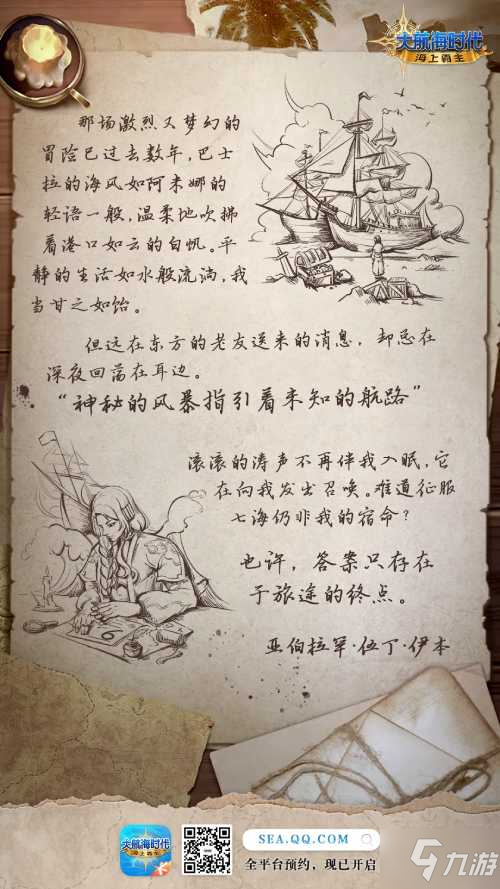 大航海时代
海上霸主
那场激烈又梦幻的
冒险已过去数年,巴士
拉的海风如阿米娜的
轻语一般,温柔地吹拂
着港口如云的白帆。平
静的生活如水般流淌,我
当甘之如饴。
但远在东方的老友送来的消息,却总在
深夜回荡在耳边。
“神秘的风暴指引着未知的航路”
滚滚的涛声不再伴我入眠,它
在向我发出召唤。难道征服
七海仍非我的宿命?
也许,答案只存在
于旅途的终点。
亚伯拉罕·伍丁·伊本
大航海时代
海上霸主
SEA.QQ.COM
全平台预约,现已开启
九游